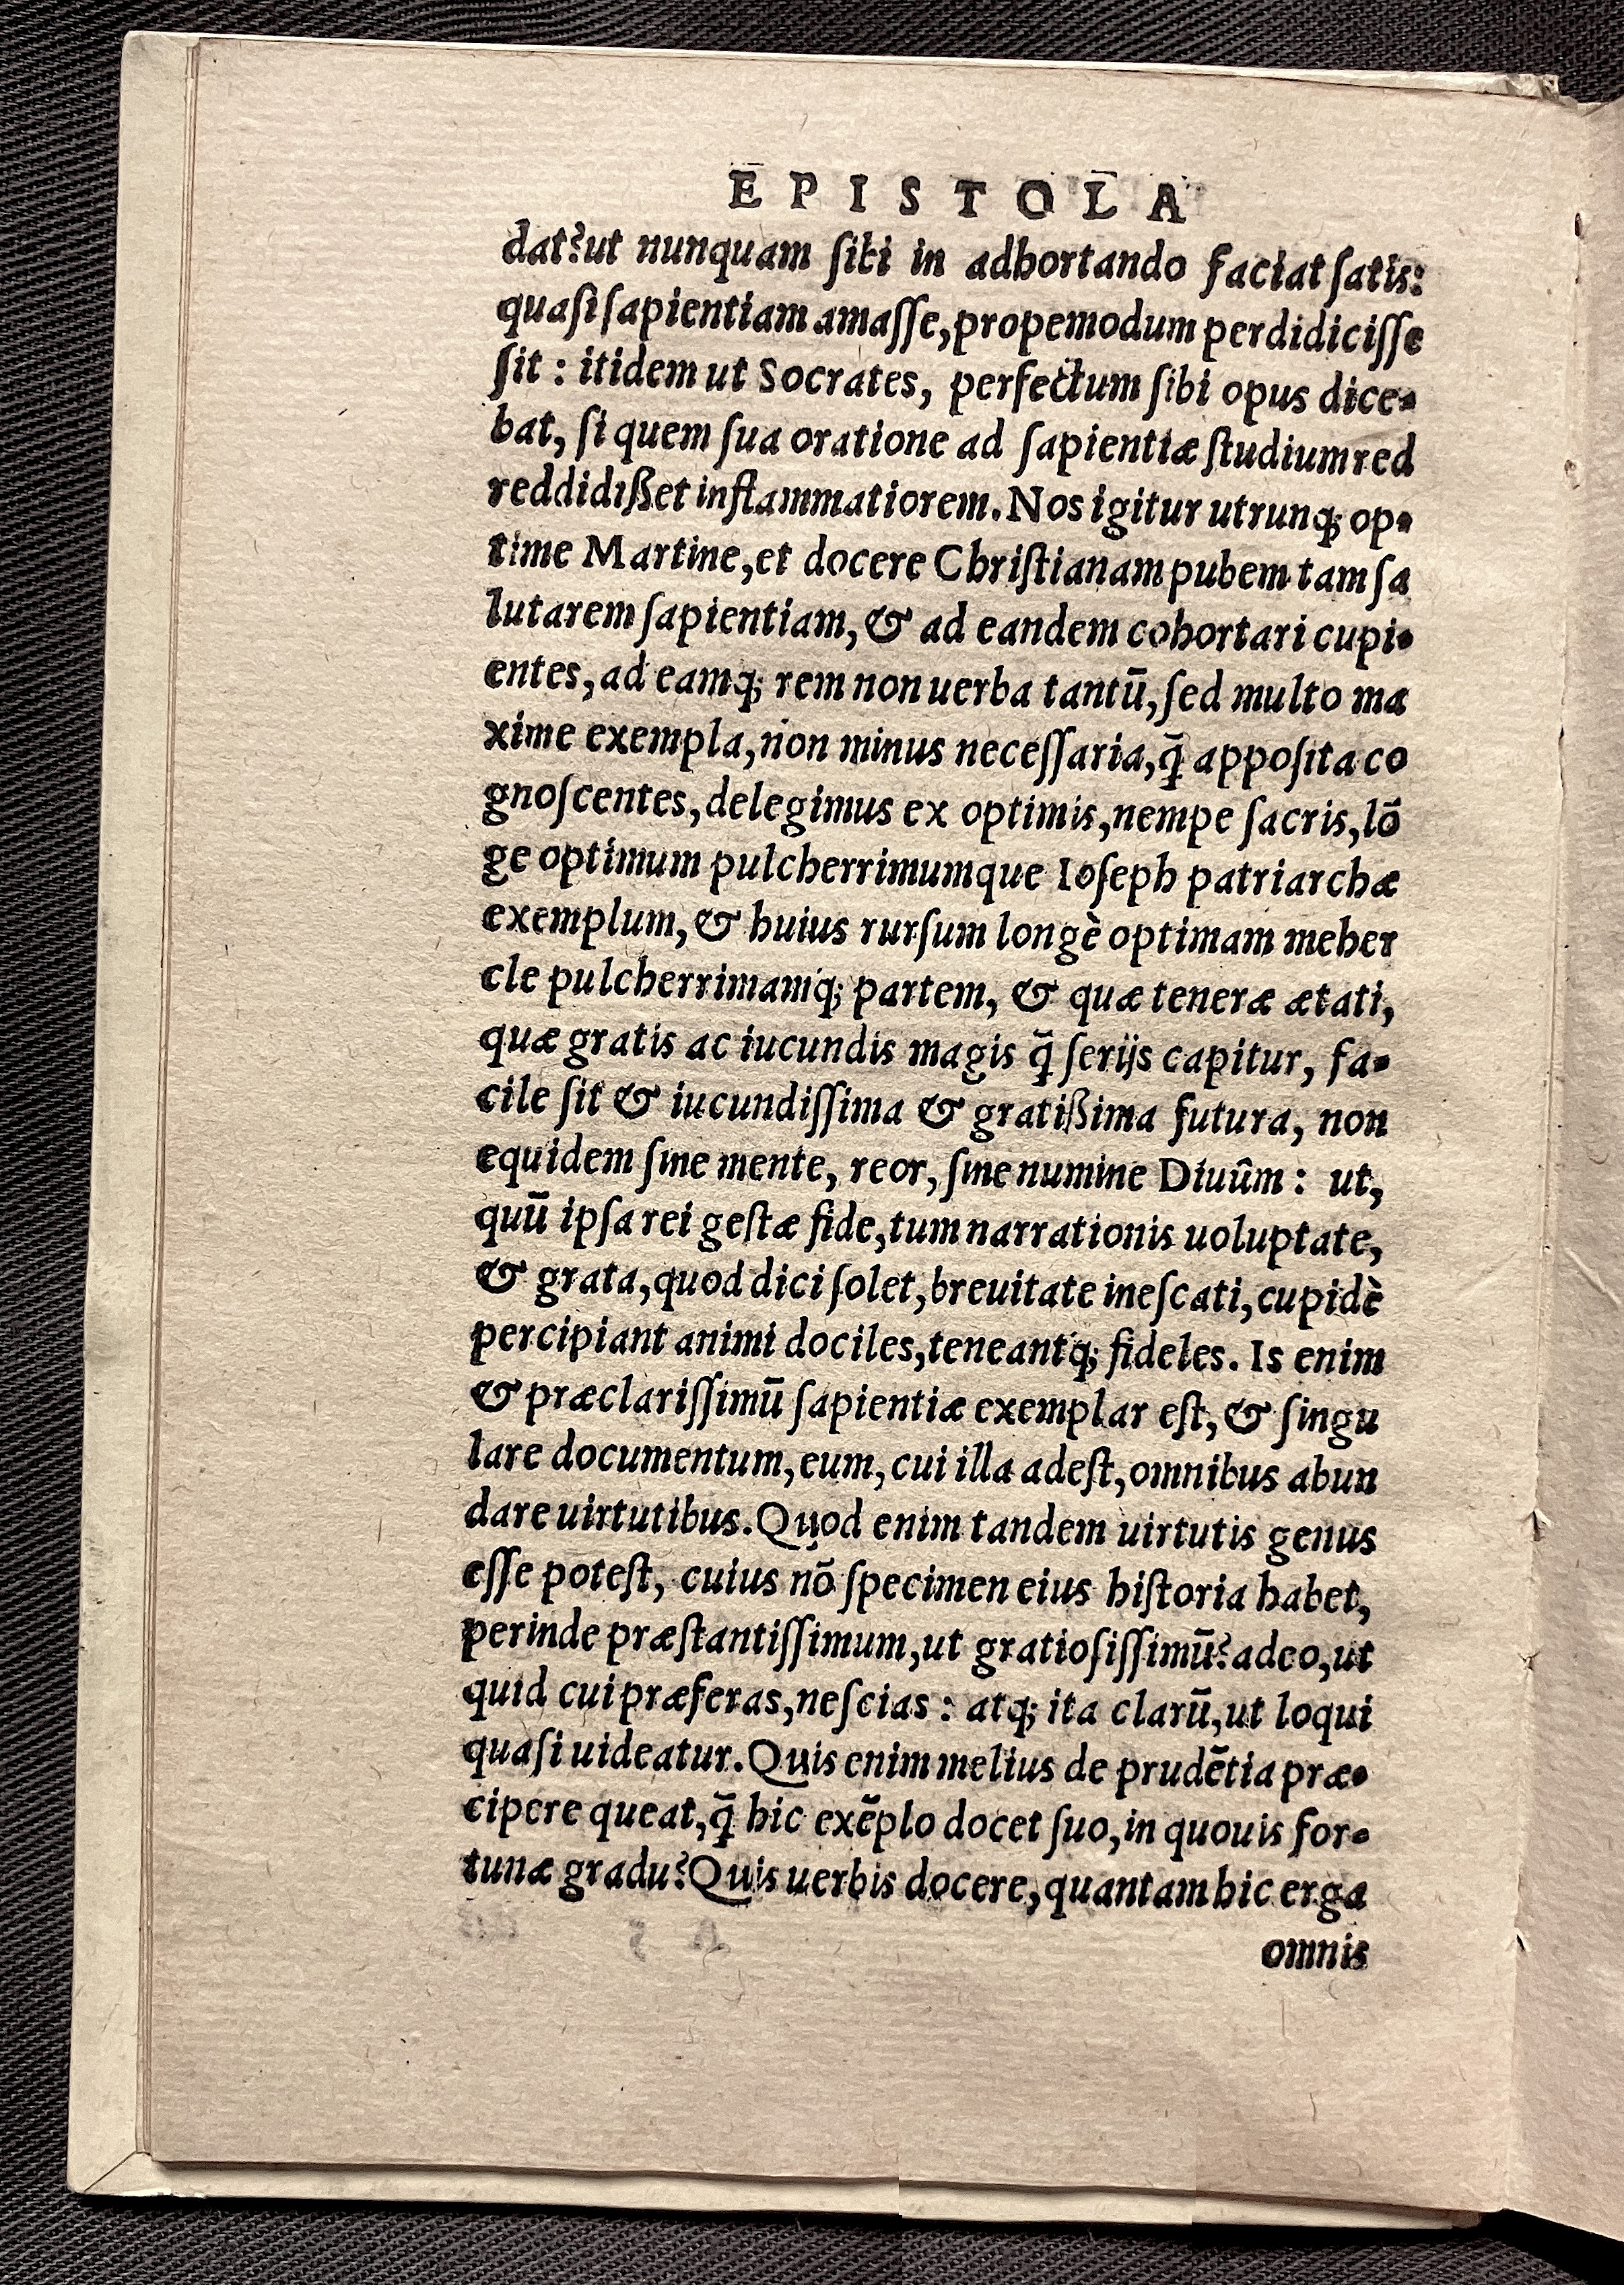 EPISTOLA
dat? ut nunquam ſibi in adhortando faciat ſatis:
quaſi ſapientiam amaſſe, propemodum perdidiciſſe
ſit: itidem ut Socrates, perfectum ſibi opus dice-
bat, ſi quem ſua oratione ad ſapientiæ ſtudium red
reddidißet inflammatiorem. Nos igitur utrunq; op-
time Martine, et docere Chriſtianam pubem tam ſa
lutarem ſapientiam, & ad eandem cohortari cupi-
entes, ad eamq; rem non uerba tantū, ſed multo ma
xime exempla, non minus neceſſaria, q̄ appoſita co
gnoſcentes, delegimus ex optimis, nempe ſacris, lō
ge optimum pulcherrimumque Ioſeph patriarchæ
exemplum, & huius rurſum longè optimam meher
cle pulcherrimamq; partem, & quæ teneræ ætati,
quæ gratis ac iucundis magis q̄ ſerijs capitur, fa-
cile ſit & iucundiſſima & gratißima futura, non
equidem ſine mente, reor, ſine numine Diuûm: ut,
quū ipſa rei geſtæ fide, tum narrationis uoluptate,
& grata, quod dici ſolet, breuitate ineſcati, cupidè
percipiant animi dociles, teneantq; fideles. Is enim
& præclariſſimū ſapientiæ exemplar eſt, & ſingu
lare documentum, eum, cui illa adeſt, omnibus abun
dare uirtutibus. Quod enim tandem uirtutis genus
eſſe poteſt, cuius nō ſpecimen eius hiſtoria habet,
perinde præſtantiſſimum, ut gratioſiſſimū? adeo, ut
quid cui præferas, neſcias: atq; ita clarū, ut loqui
quaſi uideatur. Quis enim melius de prudētia præ-
cipere queat, q̄ hic exēplo docet ſuo, in quouis for-
tunæ gradu? Quis uerbis docere, quantam hic erga
omnis